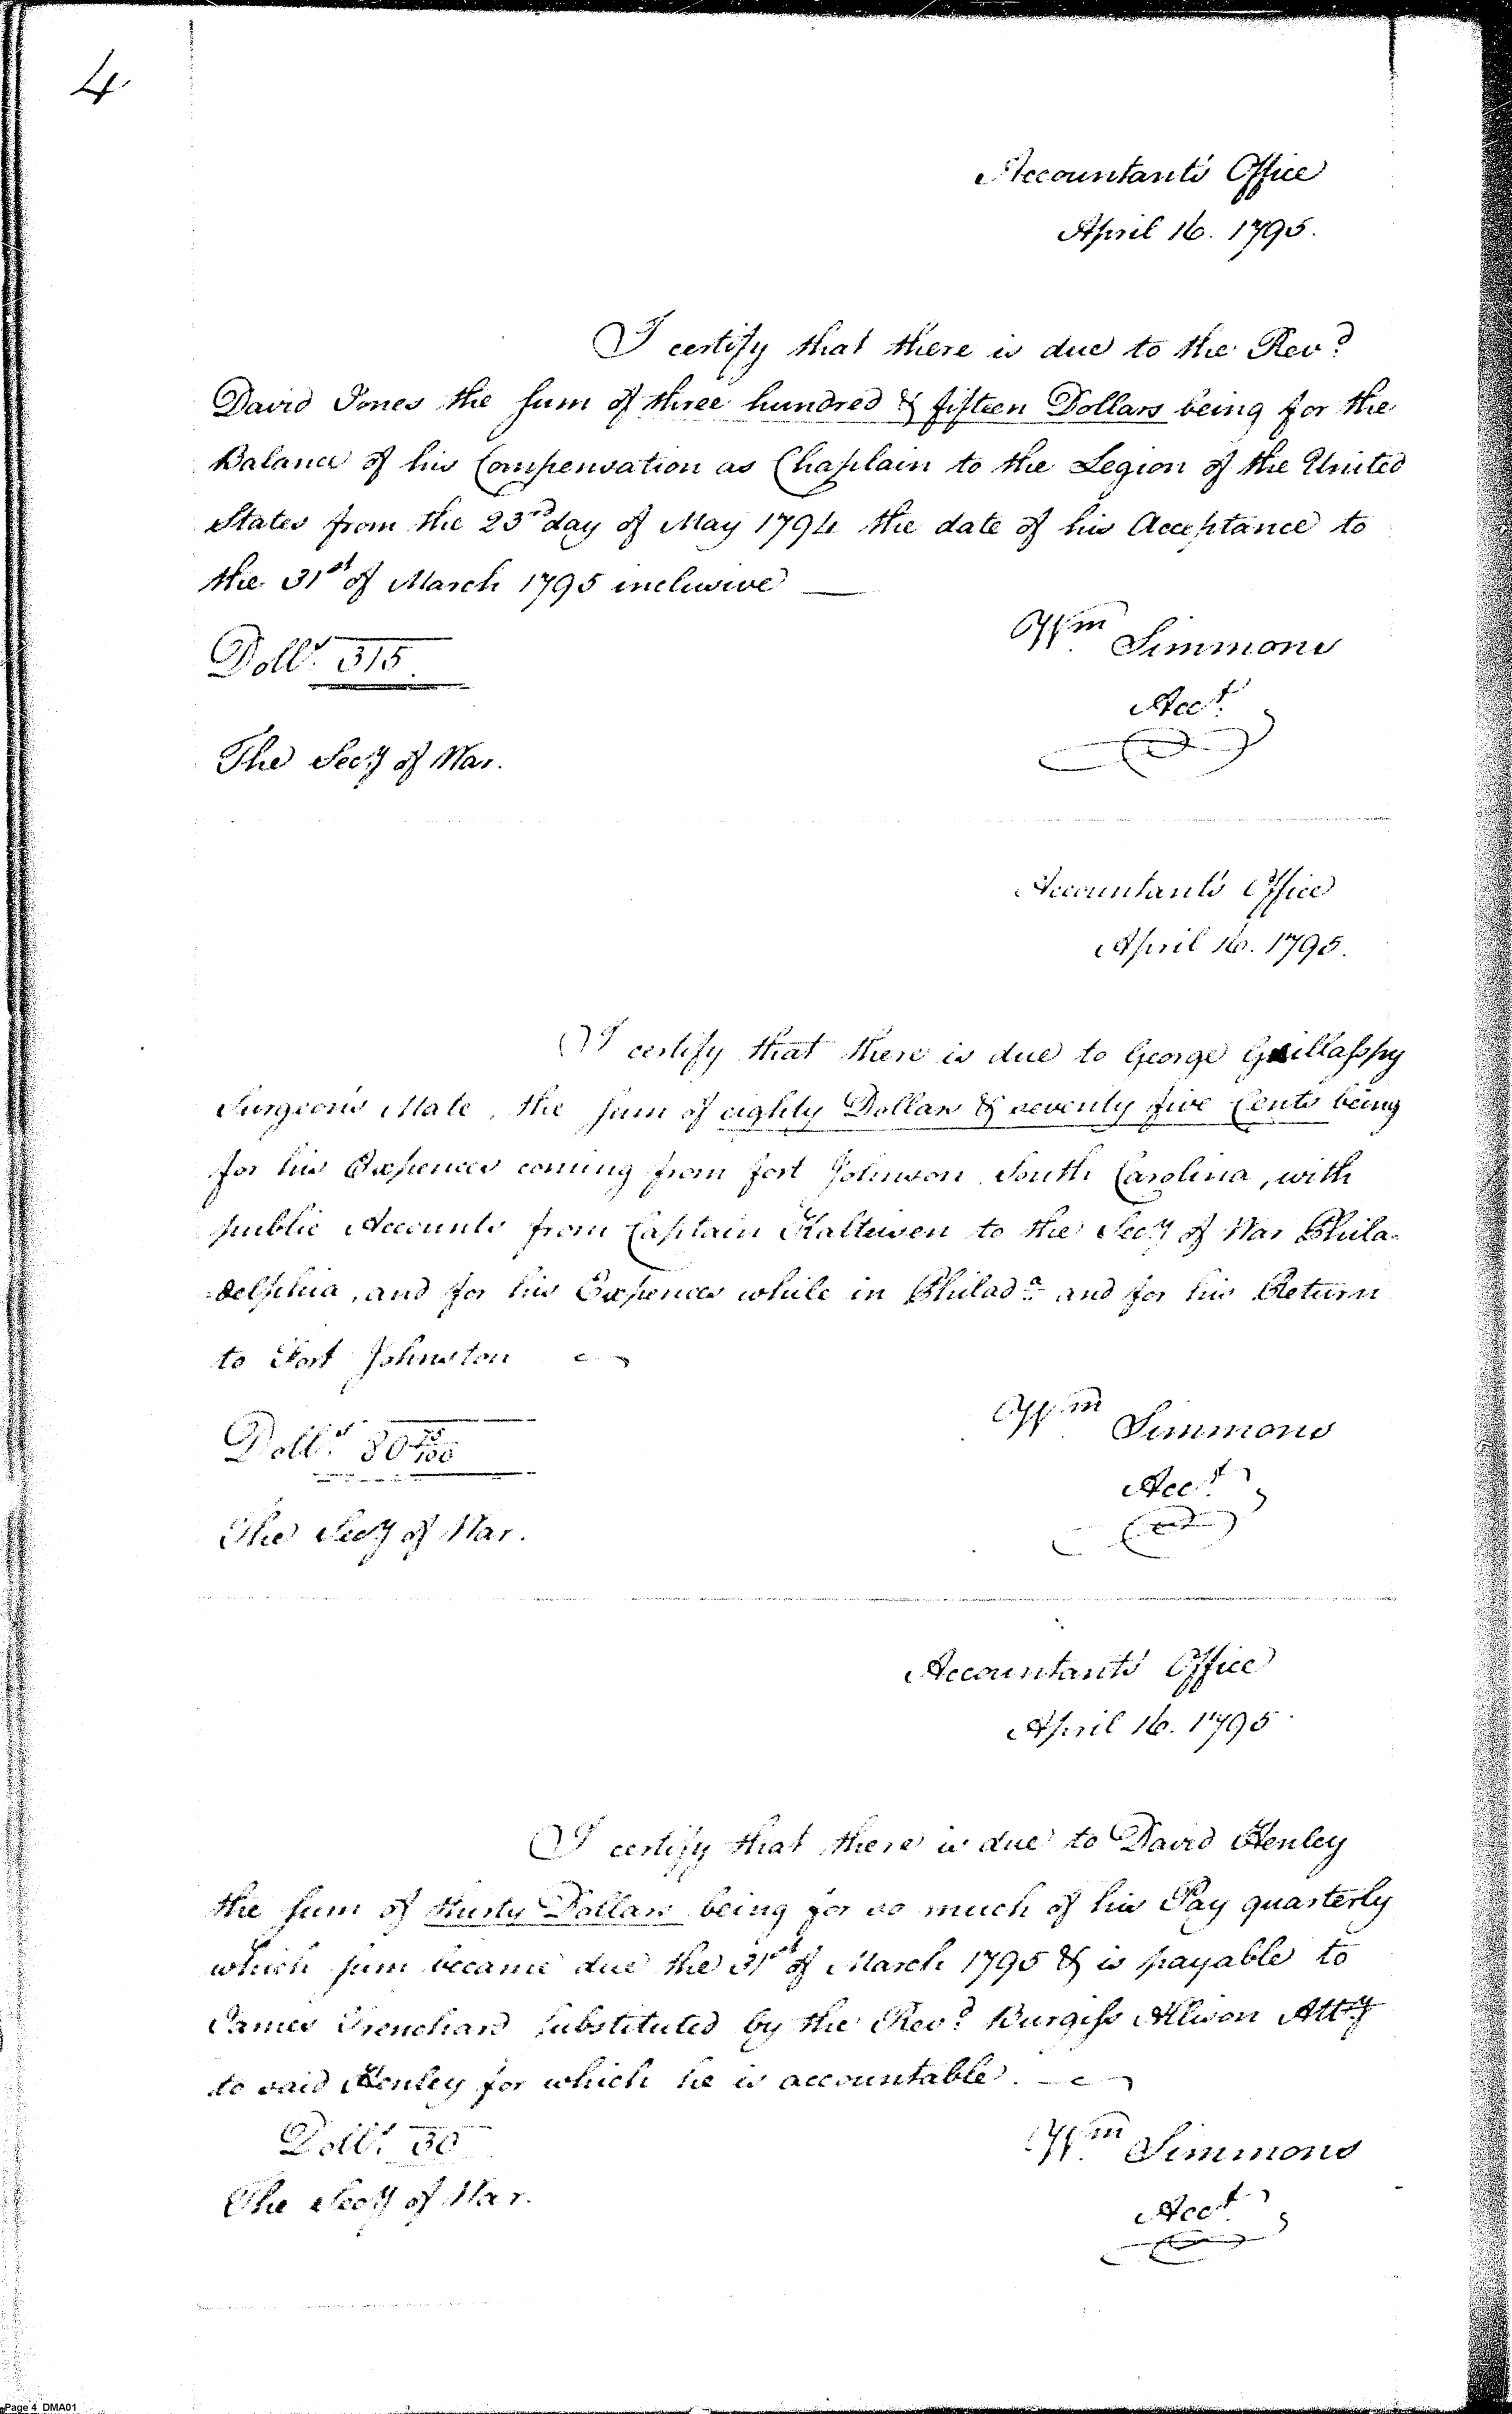 4
Accountant's Office
April 16. 1795.
I certify that there is due to the Revd
David Jones the sum of three hundred & fifteen Dollars being for the
Balance of his Compensation as Chaplain to the Legion of the United
States from the 23rd day of May 1794 the date of his Acceptance to
the 31st of March 1795 inclusive
Wm Simmons
Dolls 315
Acct
The Secy of War.
Accountant's Office
April 16. 1795.
I certify that there is due to George Gillasspy
Surgeon's Mate, the sum of eighty Dollars & seventy five Cents being
for his Expences coming from fort Johnson South Carolina, with
public Accounts from Captain Kalteisen to the Secy of War Phila-
-delphia, and for his Expences while in Philada and for his Return
to Fort Johnston
Wm Simmons
Dolls 80 75/100
Acct
The Secy of War.
Accountant's Office
April 16. 1795
I certify that there is due to David Henley
the sum of thirty Dollars being for so much of his Pay quarterly
which sum became due the 31st of March 1795 & is payable to
James Trenchard substituted by the Revd Burgiss Allison Atty
to said Henley for which he is accountable.
Wm Simmons
Dolls 30
The Secy of War.
Acct
Page 4 DMA01